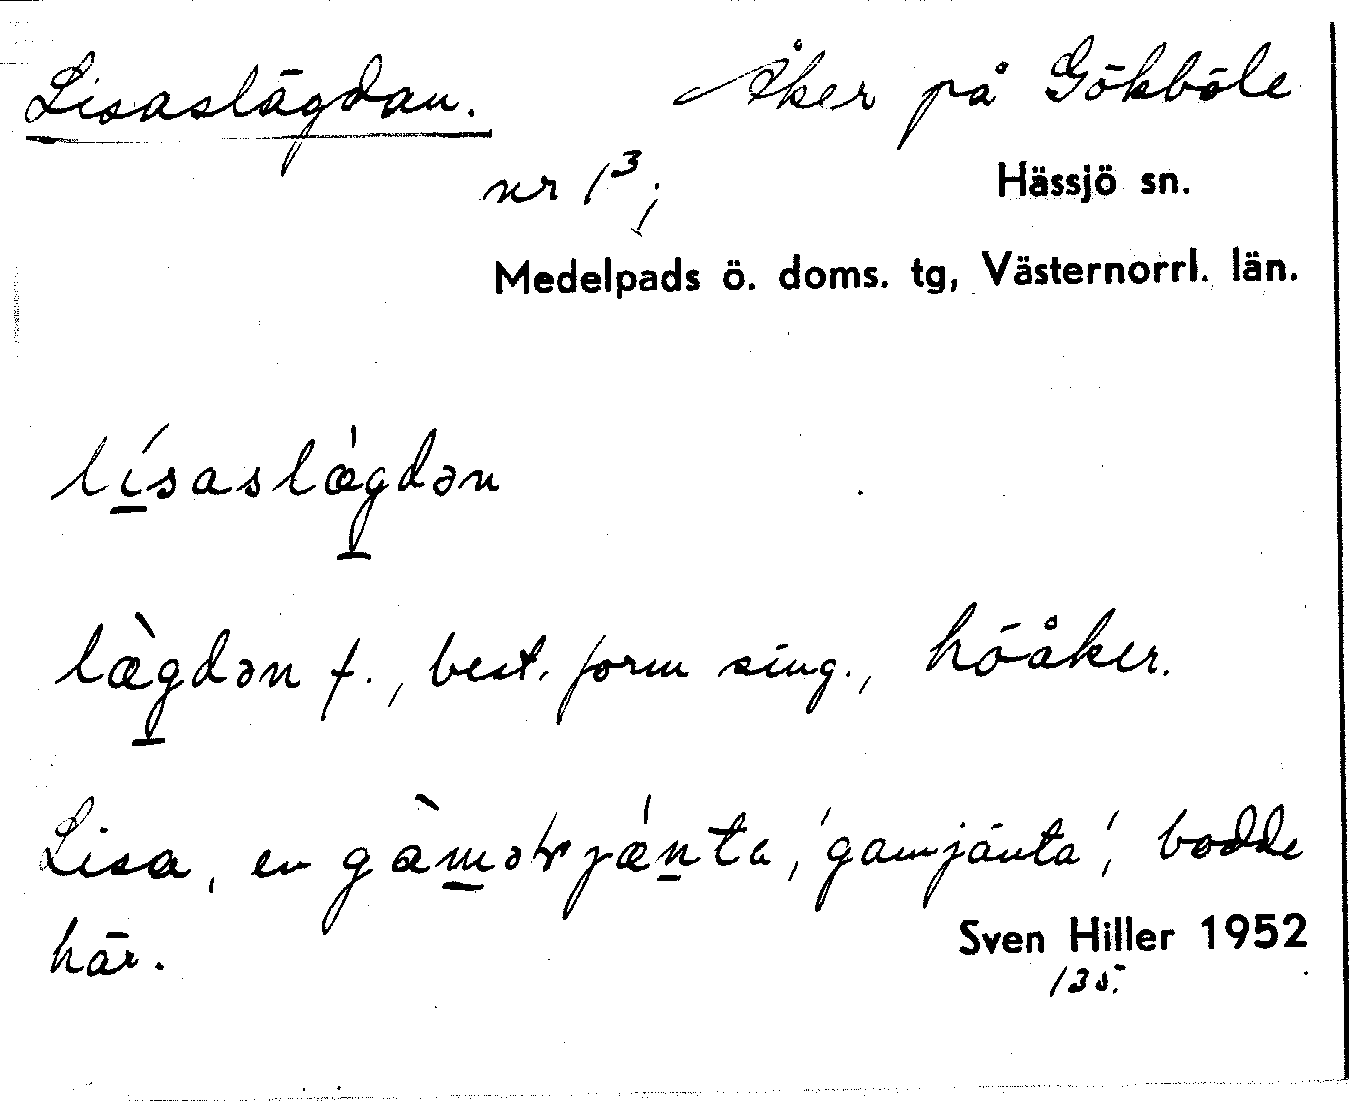 Lisaslägdan. Åker på Gökböle
nr 1³;
Hässjö sn.
Medelpads ö. doms. tg, Västernorrl. län.
lísaslæ̀gdən
læ̀gdən f., best. form sing., höåker.
Lisa, en jǽnta, 'gamjänta', bodde
här.
Sven Hiller 1952
135.